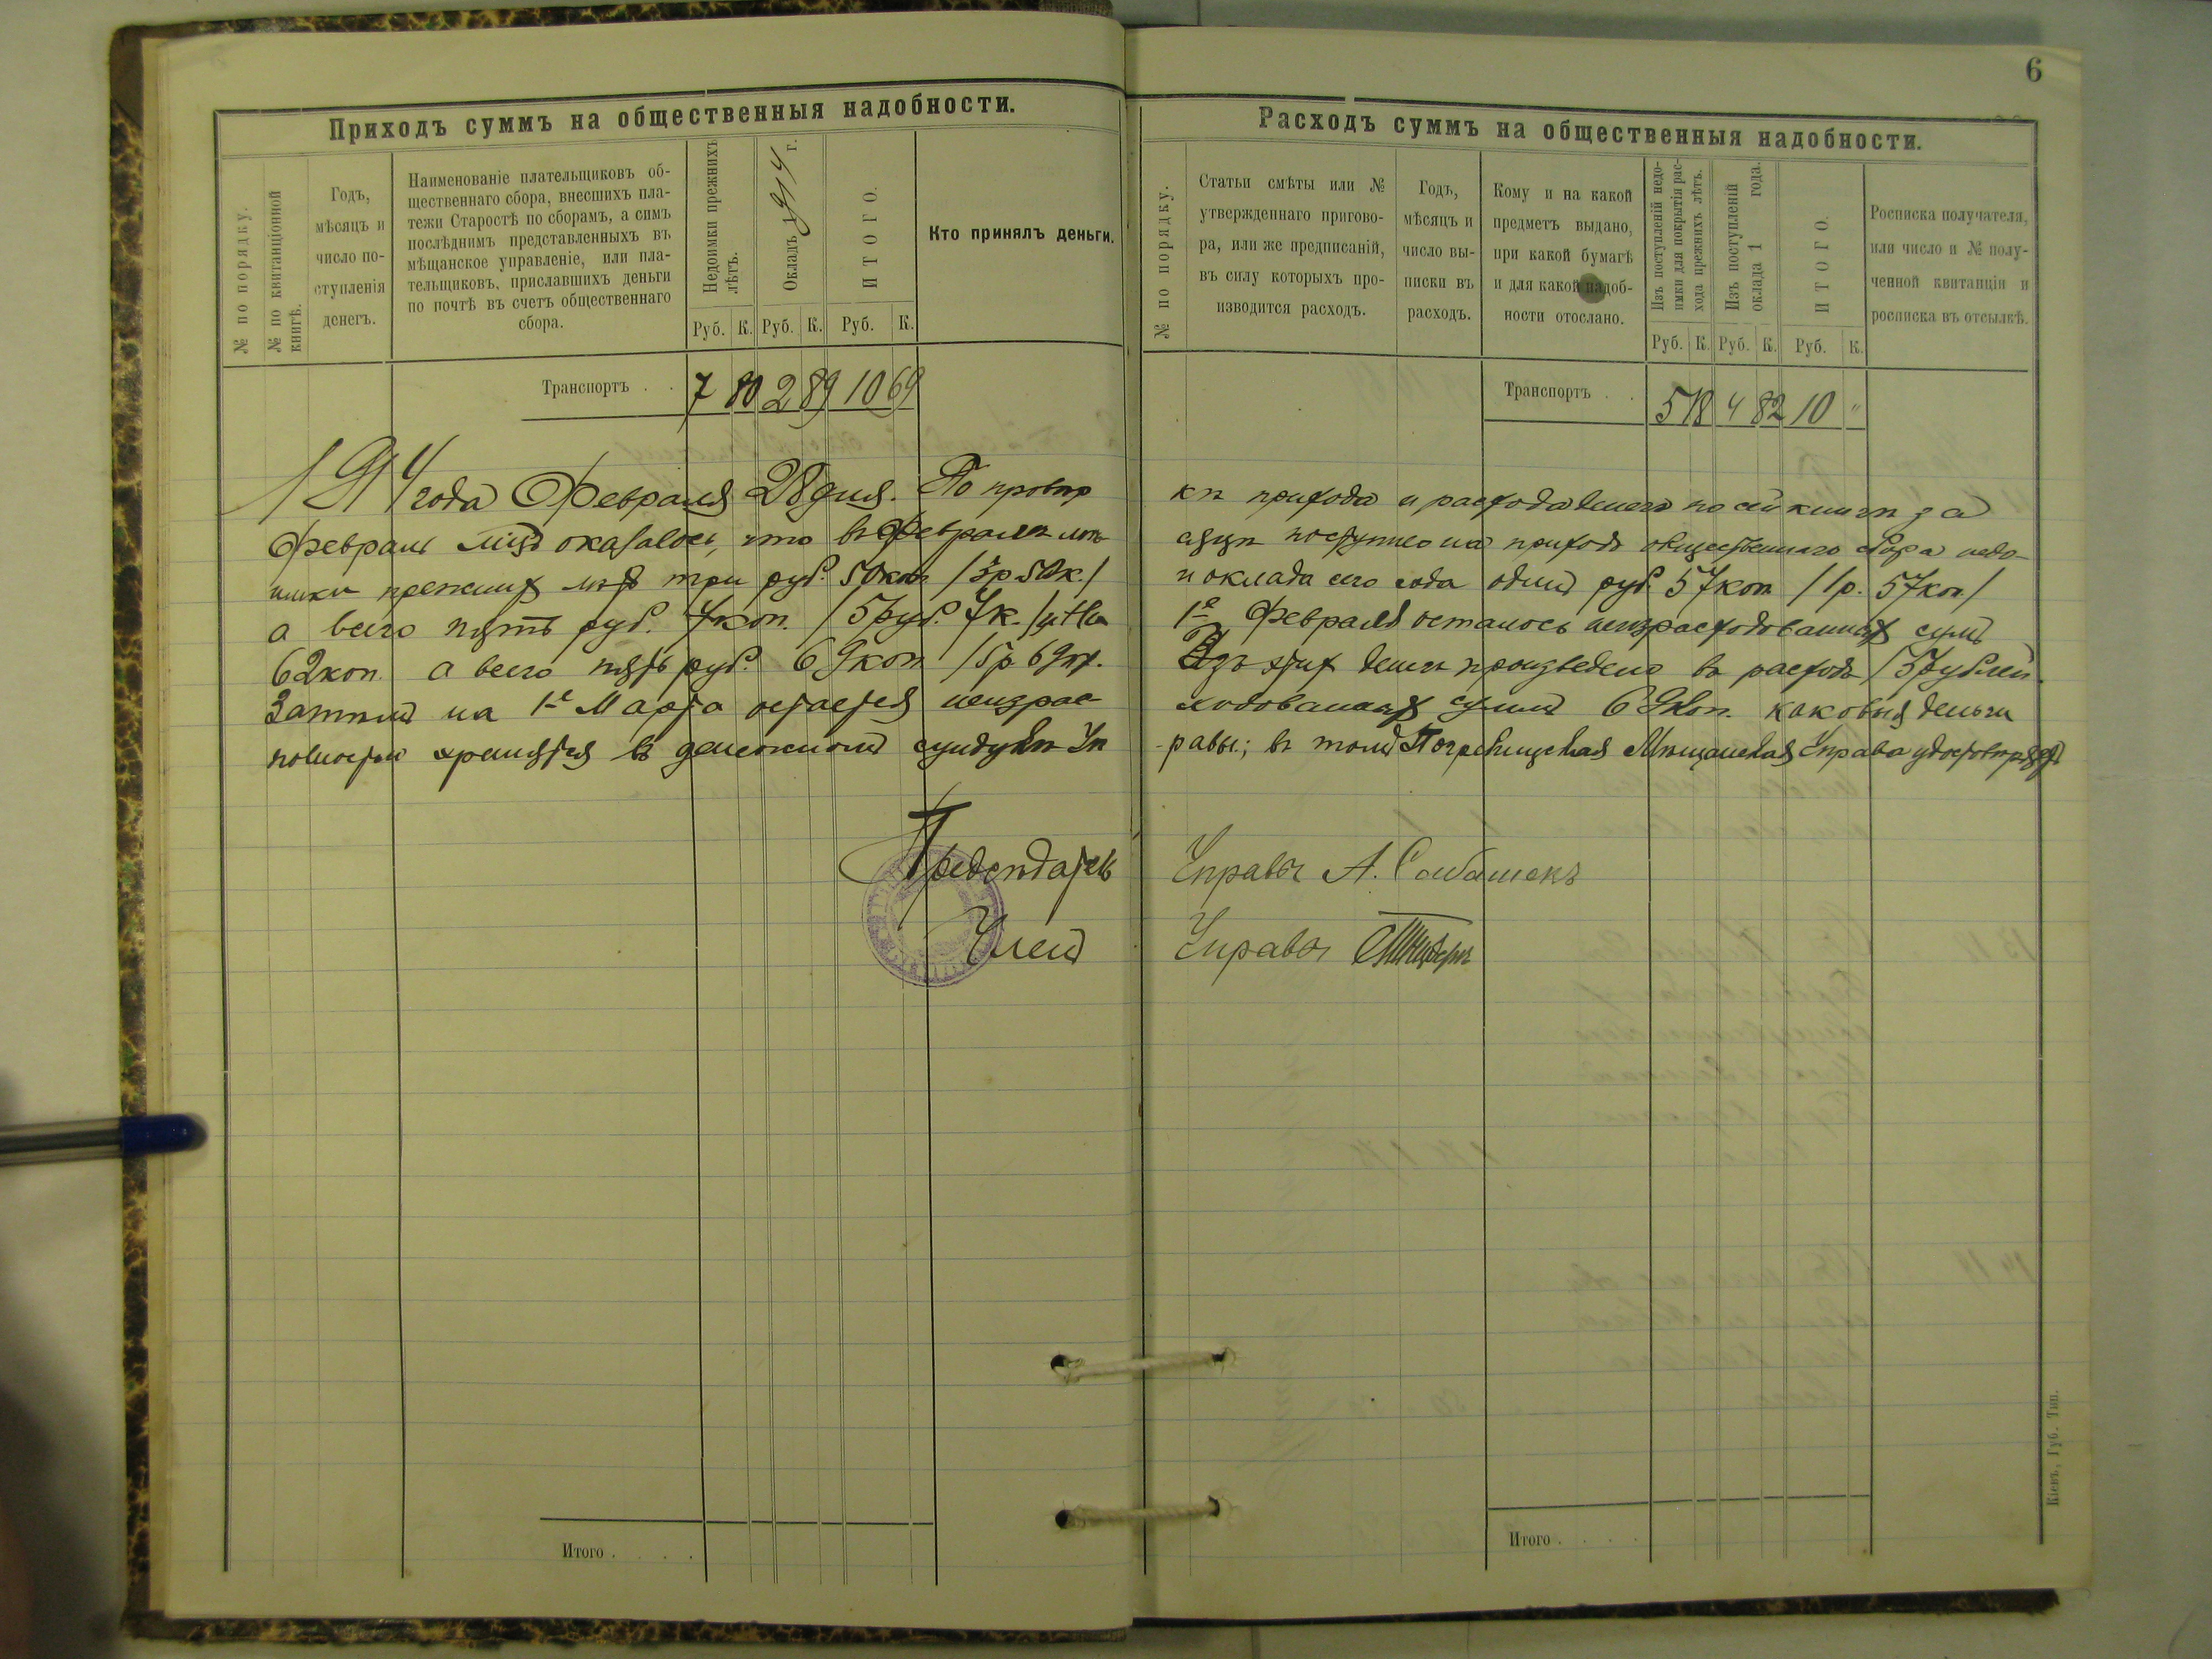 6
Приходъ суммъ на общественныя надобности.
№ по порядку.
№ по квитанціонной
книгѣ.
Годъ,
мѣсяцъ и
число по-
ступленія
денегъ.
Наименованіе плательщиковъ об-
щественнаго сбора, внесшихъ пла-
тежи Старостѣ по сборамъ, а симъ
послѣднимъ представленныхъ въ
мѣщанское управленіе, или пла-
тельщиковъ, приславшихъ деньги
по почтѣ въ счетъ общественнаго
сбора.
Недоимки прежнихъ
лѣтъ.
Окладъ 1914 г.
ИТОГО.
Кто принялъ деньги.
Руб. К. Руб. К. Руб. К.
Транспортъ . . 7 80 2 89 10 69
1914 года Февраля 28 дня. По провѣр
Февраль мцъ оказалось, что въ Февралѣ мѣ
имки прежних лѣтъ три руб. 50 коп. /3р. 50к./
а всего пять руб. 7 коп. /5 руб. 7 к./ и на
62 коп. а всего пять руб. 69 коп /5р. 69к.
Затѣмъ на 1е Марта остается неизрас
полностью хранятся въ денежномъ сундукѣ Уп
Предсѣдатель
Членъ
Итого . . . .
Расходъ суммъ на общественныя надобности.
№ по порядку.
Статьи смѣты или №
утвержденнаго пригово-
ра, или же предписаній,
въ силу которыхъ про-
изводится расходъ.
Годъ,
мѣсяцъ и
число вы-
писки въ
расходъ.
Кому и на какой
предметъ выдано,
при какой бумагѣ
и для какой надоб-
ности отослано.
Изъ поступленій недо-
имки для покрытія рас-
хода прежнихъ лѣтъ.
Изъ поступленій
оклада 1 года.
ИТОГО.
Росписка получателя,
или число и № полу-
ченной квитанціи и
росписка въ отсылкѣ.
Руб. К. Руб. К. Руб. К.
Транспортъ . . 5 18 4 82 10 "
кѣ прихода и расхода денегъ по сей книгѣ за
сяцѣ поступило на приходъ общественнаго сбора недо-
и оклада сего года одинъ руб. 57 коп /1р. 57 коп/
1е Февраля осталось неизрасходованных суммъ
Изъ этих денегъ произведено въ расходъ /5 рублей.
ходованных суммъ 69 коп. каковыя деньги
-равы; въ томъ Погребищская Мѣщанская Управа удостовѣряетъ
Управы А.
Управы
Итого . . . .
Кіевъ, Губ. Тип.